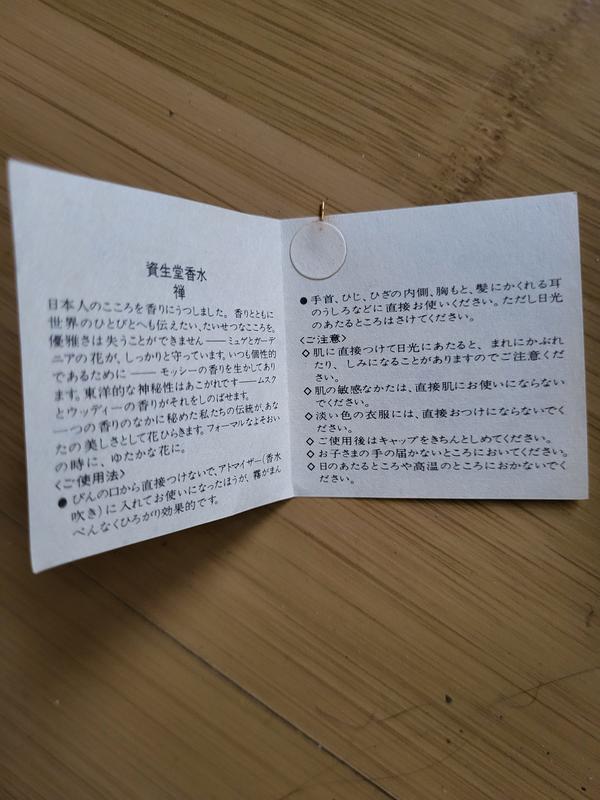 資生堂香水
禅
日本人のこころを香りにうつしました。香りとともに
世界のひとびとへも伝えたい、たいせつなこころを。
優雅さは失うことができません——ミュゲとガーデ
ニアの花が、しっかりと守っています。いつも個性的
であるために——モッシーの香りを生かしてあり
ます。東洋的な神秘性はあこがれです——ムスク
とウッディーの香りがそれをしのばせます。
一つの香りのなかに秘めた私たちの伝統が、あな
たの美しさとして花ひらきます。フォーマルなよそおい
の時に、ゆたかな花に。
〈ご使用法〉
●びんの口から直接つけないで、アトマイザー(香水
吹き)に入れてお使いになったほうが、霧がまん
べんなくひろがり効果的です。
●手首、ひじ、ひざの内側、胸もと、髪にかくれる耳
のうしろなどに直接お使いください。ただし日光
のあたるところはさけてください。
〈ご注意〉
◇肌に直接つけて日光にあたると、まれにかぶれ
たり、しみになることがありますのでご注意くだ
さい。
◇肌の敏感なかたは、直接肌にお使いにならない
でください。
◇淡い色の衣服には、直接おつけにならないでく
ださい。
◇ご使用後はキャップをきちんとしめてください。
◇お子さまの手の届かないところにおいてください。
◇日のあたるところや高温のところにおかないでく
ださい。